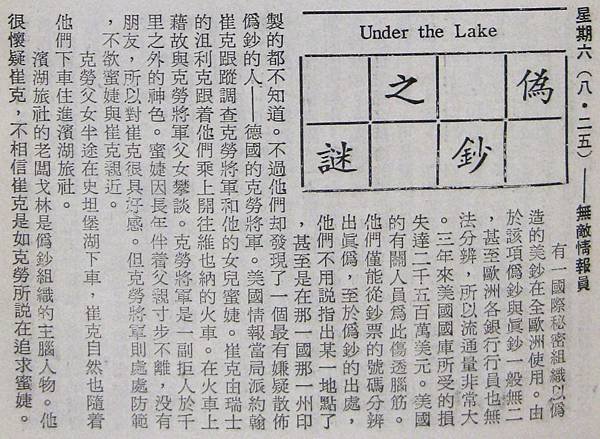 星期六（八・二五）——無敵情報員
Under the Lake
偽鈔之謎
有一國際秘密組織以僞
造的美鈔在全歐洲使用。由
於該項僞鈔與眞鈔一般無二
，甚至歐洲各銀行行員也無
法分辨，所以流通量非常大
。三年來美國國庫所受的損
失達二千五百萬美元。美國
的有關人員爲此傷透腦筋。
他們僅能從鈔票的號碼分辨
出眞僞，至於僞鈔的出處，
他們不用說指出某一地點了
，甚至是在那一國那一州印
製的都不知道。不過他們却發現了一個最有嫌疑散佈
僞鈔的人——德國的克勞將軍。美國情報當局派約翰
崔克跟蹤調查克勞將軍和他的女兒蜜婕。崔克由瑞士
的沮利克跟着他們乘上開往維也納的火車。在火車上
藉故與克勞將軍父女攀談。克勞將軍是一副拒人於千
里之外的神色。蜜婕因長年伴着父親寸步不離，沒有
朋友，所以對崔克很具好感。但克勞將軍則處處防範
，不欲蜜婕與崔克親近。
克勞父女半途在史坦堡湖下車，崔克自然也隨着
他們下車住進濱湖旅社。
濱湖旅社的老闆戈林是僞鈔組織的主腦人物。他
很懷疑崔克，不相信崔克是如克勞所說在追求蜜婕。